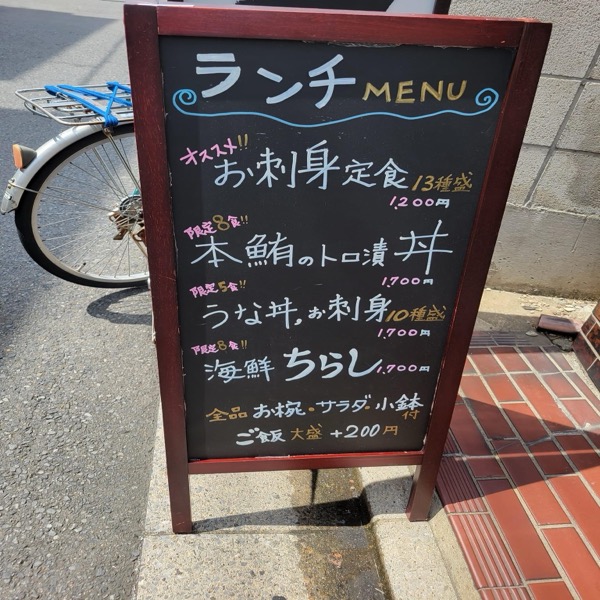 ランチ MENU
オススメ!!
お刺身定食 13種盛
1,200円
限定8食!!
本鮪のトロ漬丼
1,700円
限定5食!!
うな丼,お刺身10種盛
1,700円
限定8食!!
海鮮ちらし1,700円
全品 お椀・サラダ・小鉢付
ご飯 大盛 +200円